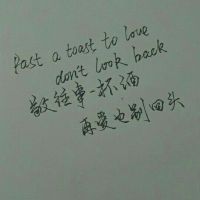 Past a toast to love
don't look back
敬往事一杯酒
再爱也别回头